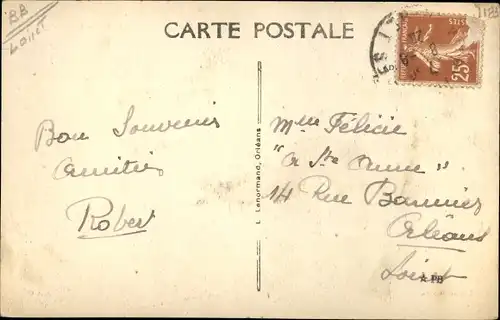 BB
Loiret
CARTE POSTALE
25c
Bon Souvenir
Amitiés
Robert
L. Lenormand, Orléans
Mme Félicie
"A Ste Anne"
14 Rue Bannier
Orléans
Loiret
PB